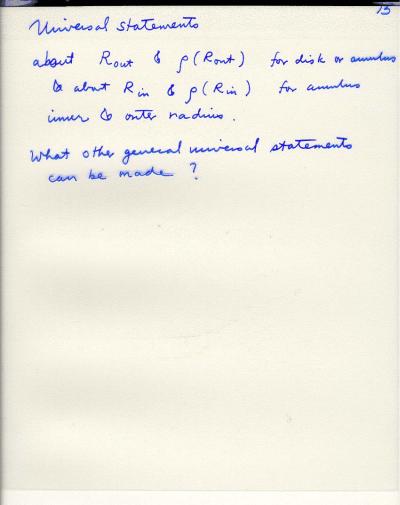 15
Universal statements
about Rout & ρ(Rout) for disk or annulus
& about Rin & ρ(Rin) for annulus
inner & outer radius.
What other general universal statements
can be made?